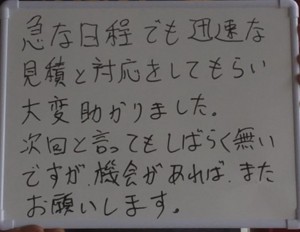 急な日程でも迅速な
見積と対応をしてもらい
大変助かりました。
次回と言ってもしばらく無い
ですが、機会があれば、また
お願いします。